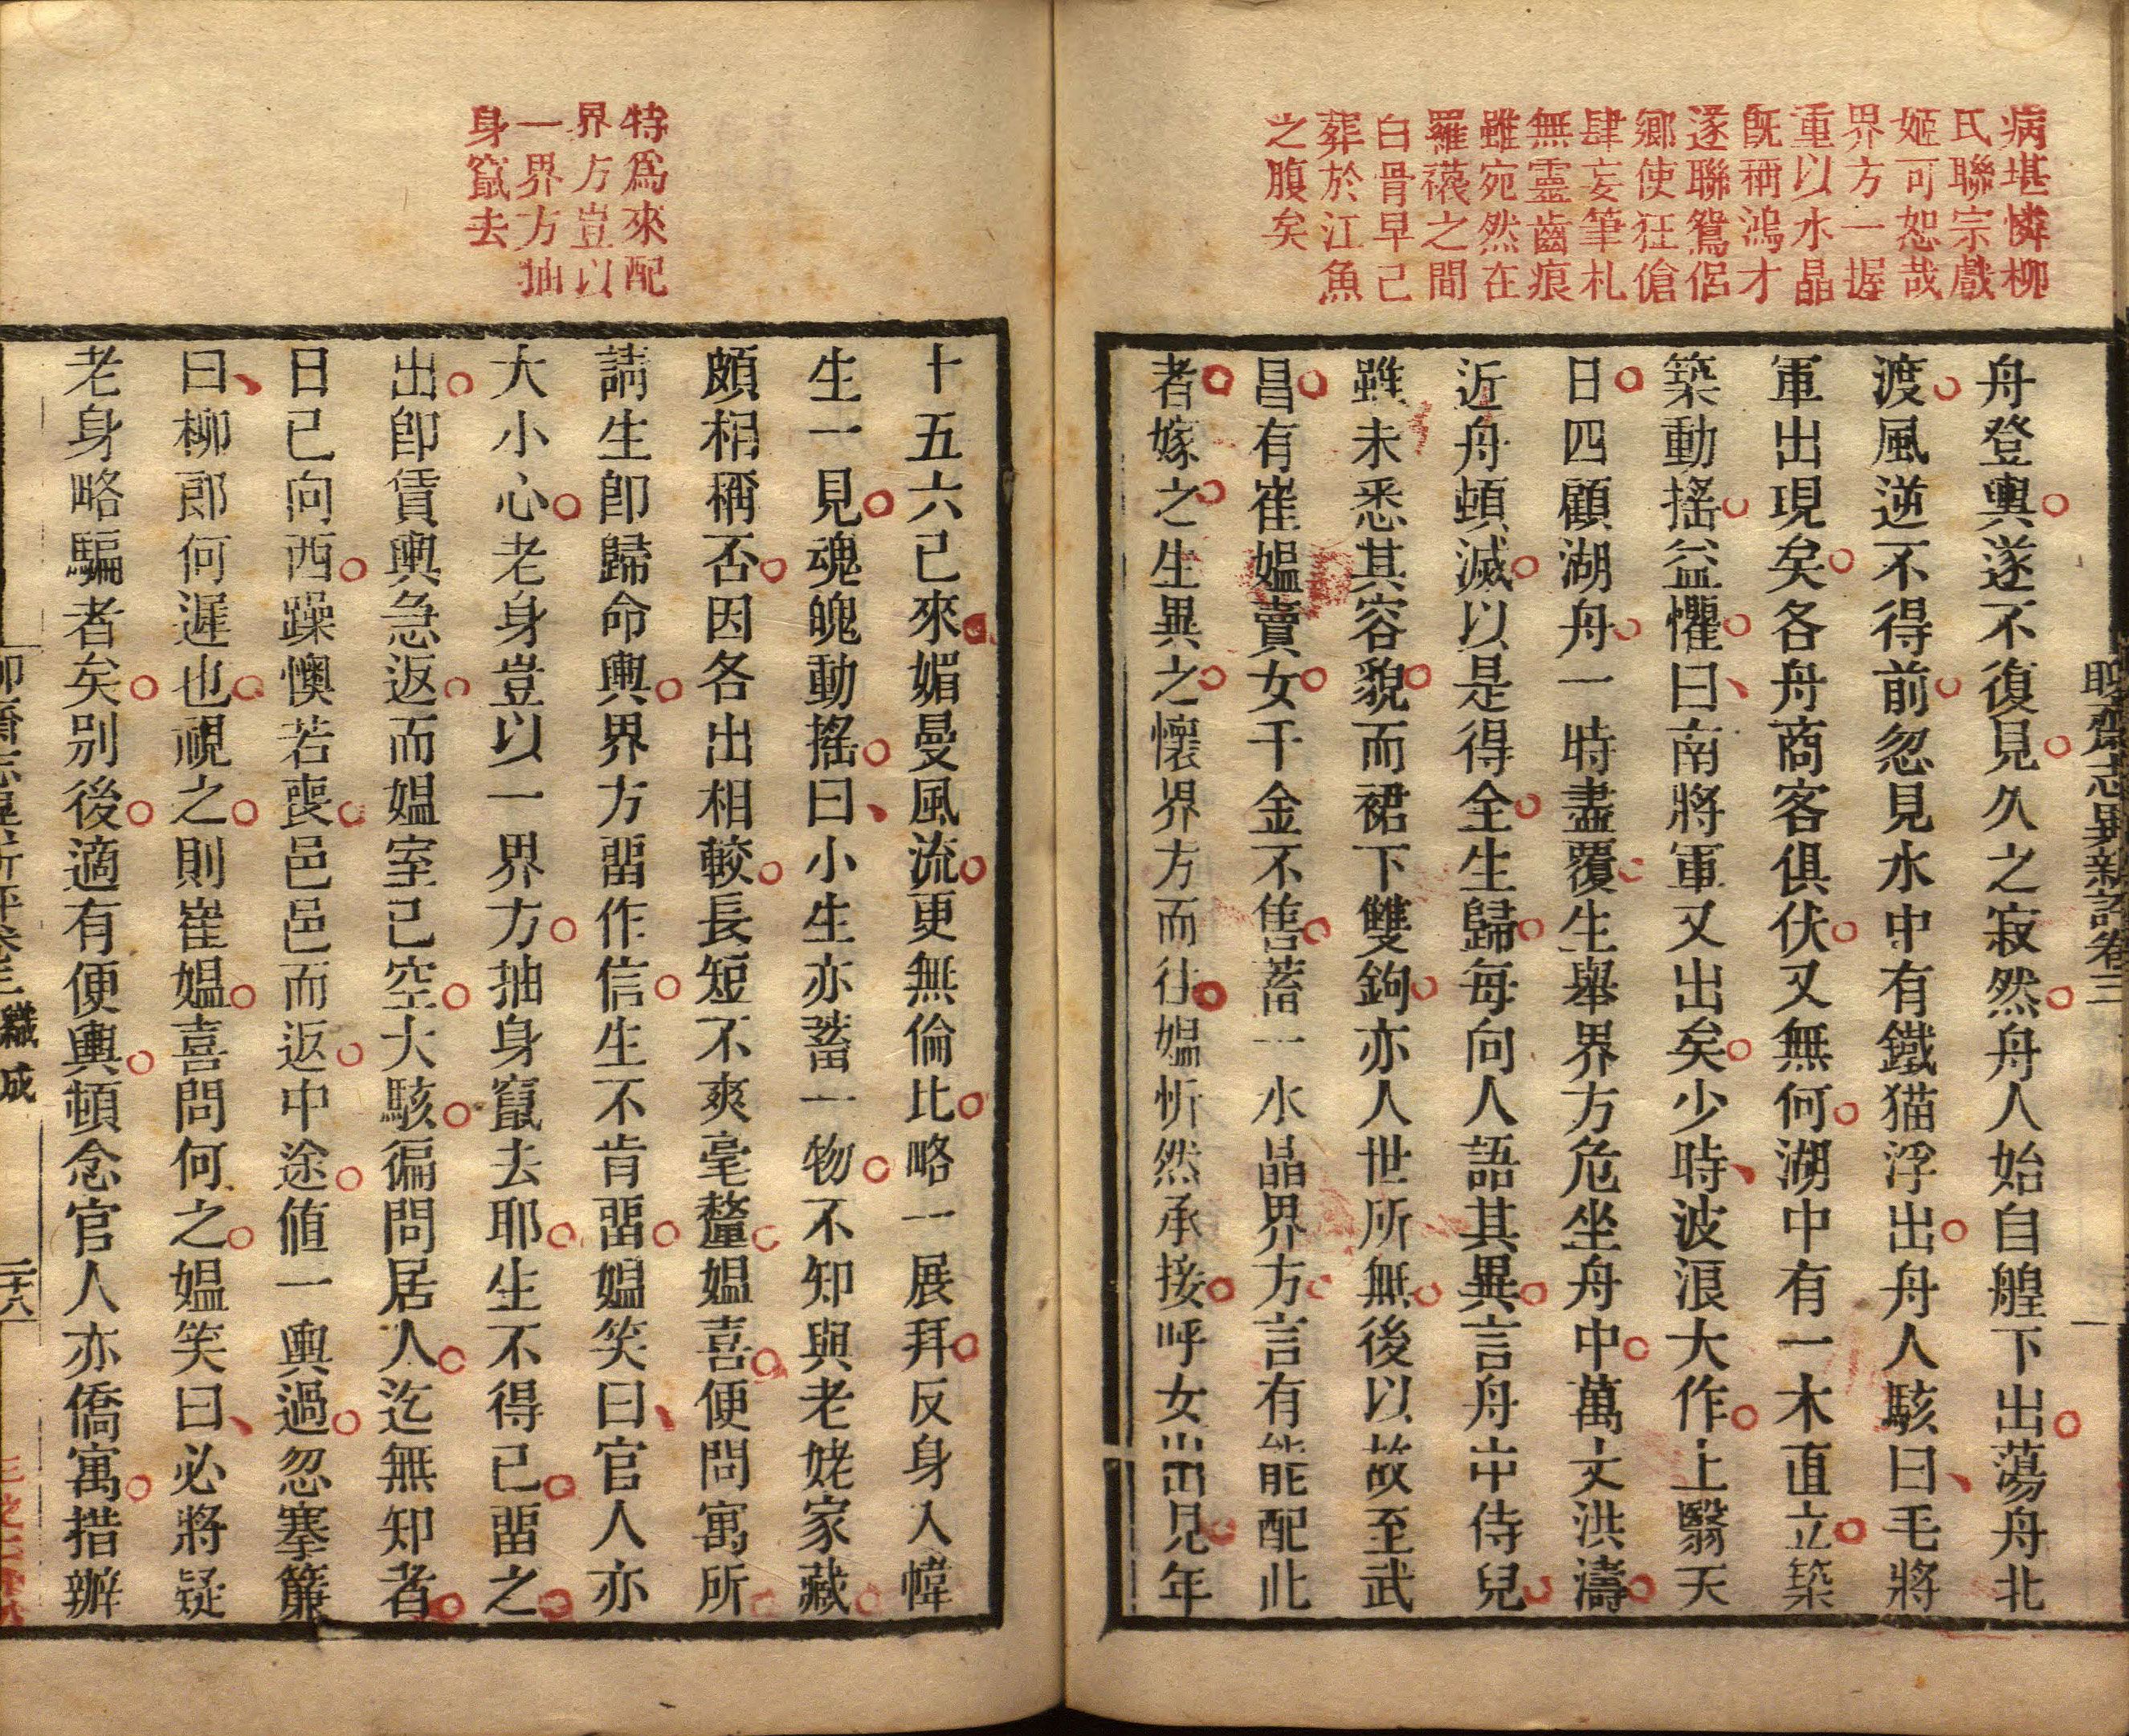 病堪憐柳
氏聯宗戲
姬可恕哉
界方一握
重以水晶
既稱鴻才
遂聯鴛侶
鄉使狂傖
肆妄筆札
無靈齒痕
雖宛然在
羅襪之間
白骨早已
葬於江魚
之腹矣
聊齋志異新評卷三
舟登輿遂不復見久之寂然舟人始自艎下出蕩舟北
渡風逆不得前忽見水中有鐵猫浮出舟人駭曰毛將
軍出現矣各舟商客俱伏又無何湖中有一木直立築
築動搖益懼曰南將軍又出矣少時波浪大作上翳天
日四顧湖舟一時盡覆生舉界方危坐舟中萬丈洪濤
近舟頓滅以是得全生歸每向人語其異言舟中侍兒
雖未悉其容貌而裙下雙鉤亦人世所無後以故至武
昌有崔媼賣女千金不售蓄一水晶界方言有能配此
者嫁之生異之懷界方而往媼忻然承接呼女出見年
特爲來配
界方豈以
一界方抽
身竄去
十五六已來媚曼風流更無倫比略一展拜反身入幃
生一見魂魄動搖曰小生亦蓄一物不知與老姥家藏
頗相稱否因各出相較長短不爽毫釐媼喜便問寓所
請生卽歸命輿界方畱作信生不肯畱媼笑曰官人亦
大小心老身豈以一界方抽身竄去耶生不得已畱之
出卽賃輿急返而媼室已空大駭徧問居人迄無知者
日已向西躁懊若喪邑邑而返中途値一輿過忽搴簾
曰柳郎何遲也視之則崔媼喜問何之媼笑曰必將疑
老身略騙者矣別後適有便輿頓念官人亦僑寓措辦
聊齋志異新評卷三 織成 二十八